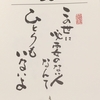 この世に
必要のない人なんて
ひとりも
いないよ